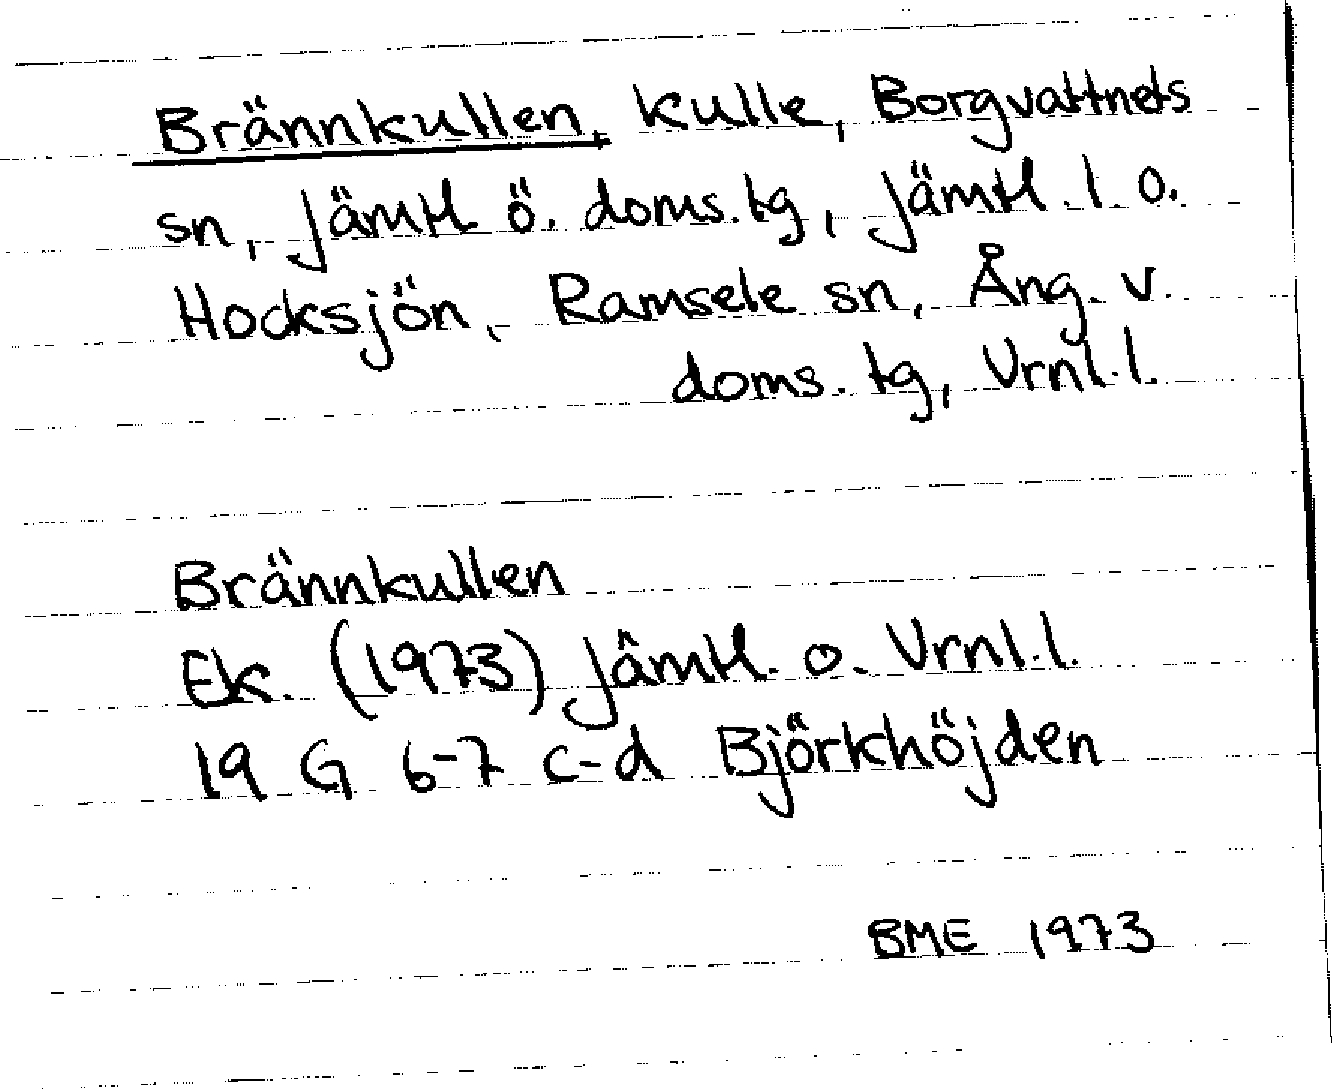 Brännkullen, kulle, Borgvattnets
sn, Jämtl ö. doms.tg, Jämtl. l o.
Hocksjön, Ramsele sn, Ång. v.
doms. tg, Vrnl.l.
Brännkullen
Ek. (1973) Jämtl. o. Vrnl.l.
19 G 6-7 c-d Björkhöjden
BME 1973